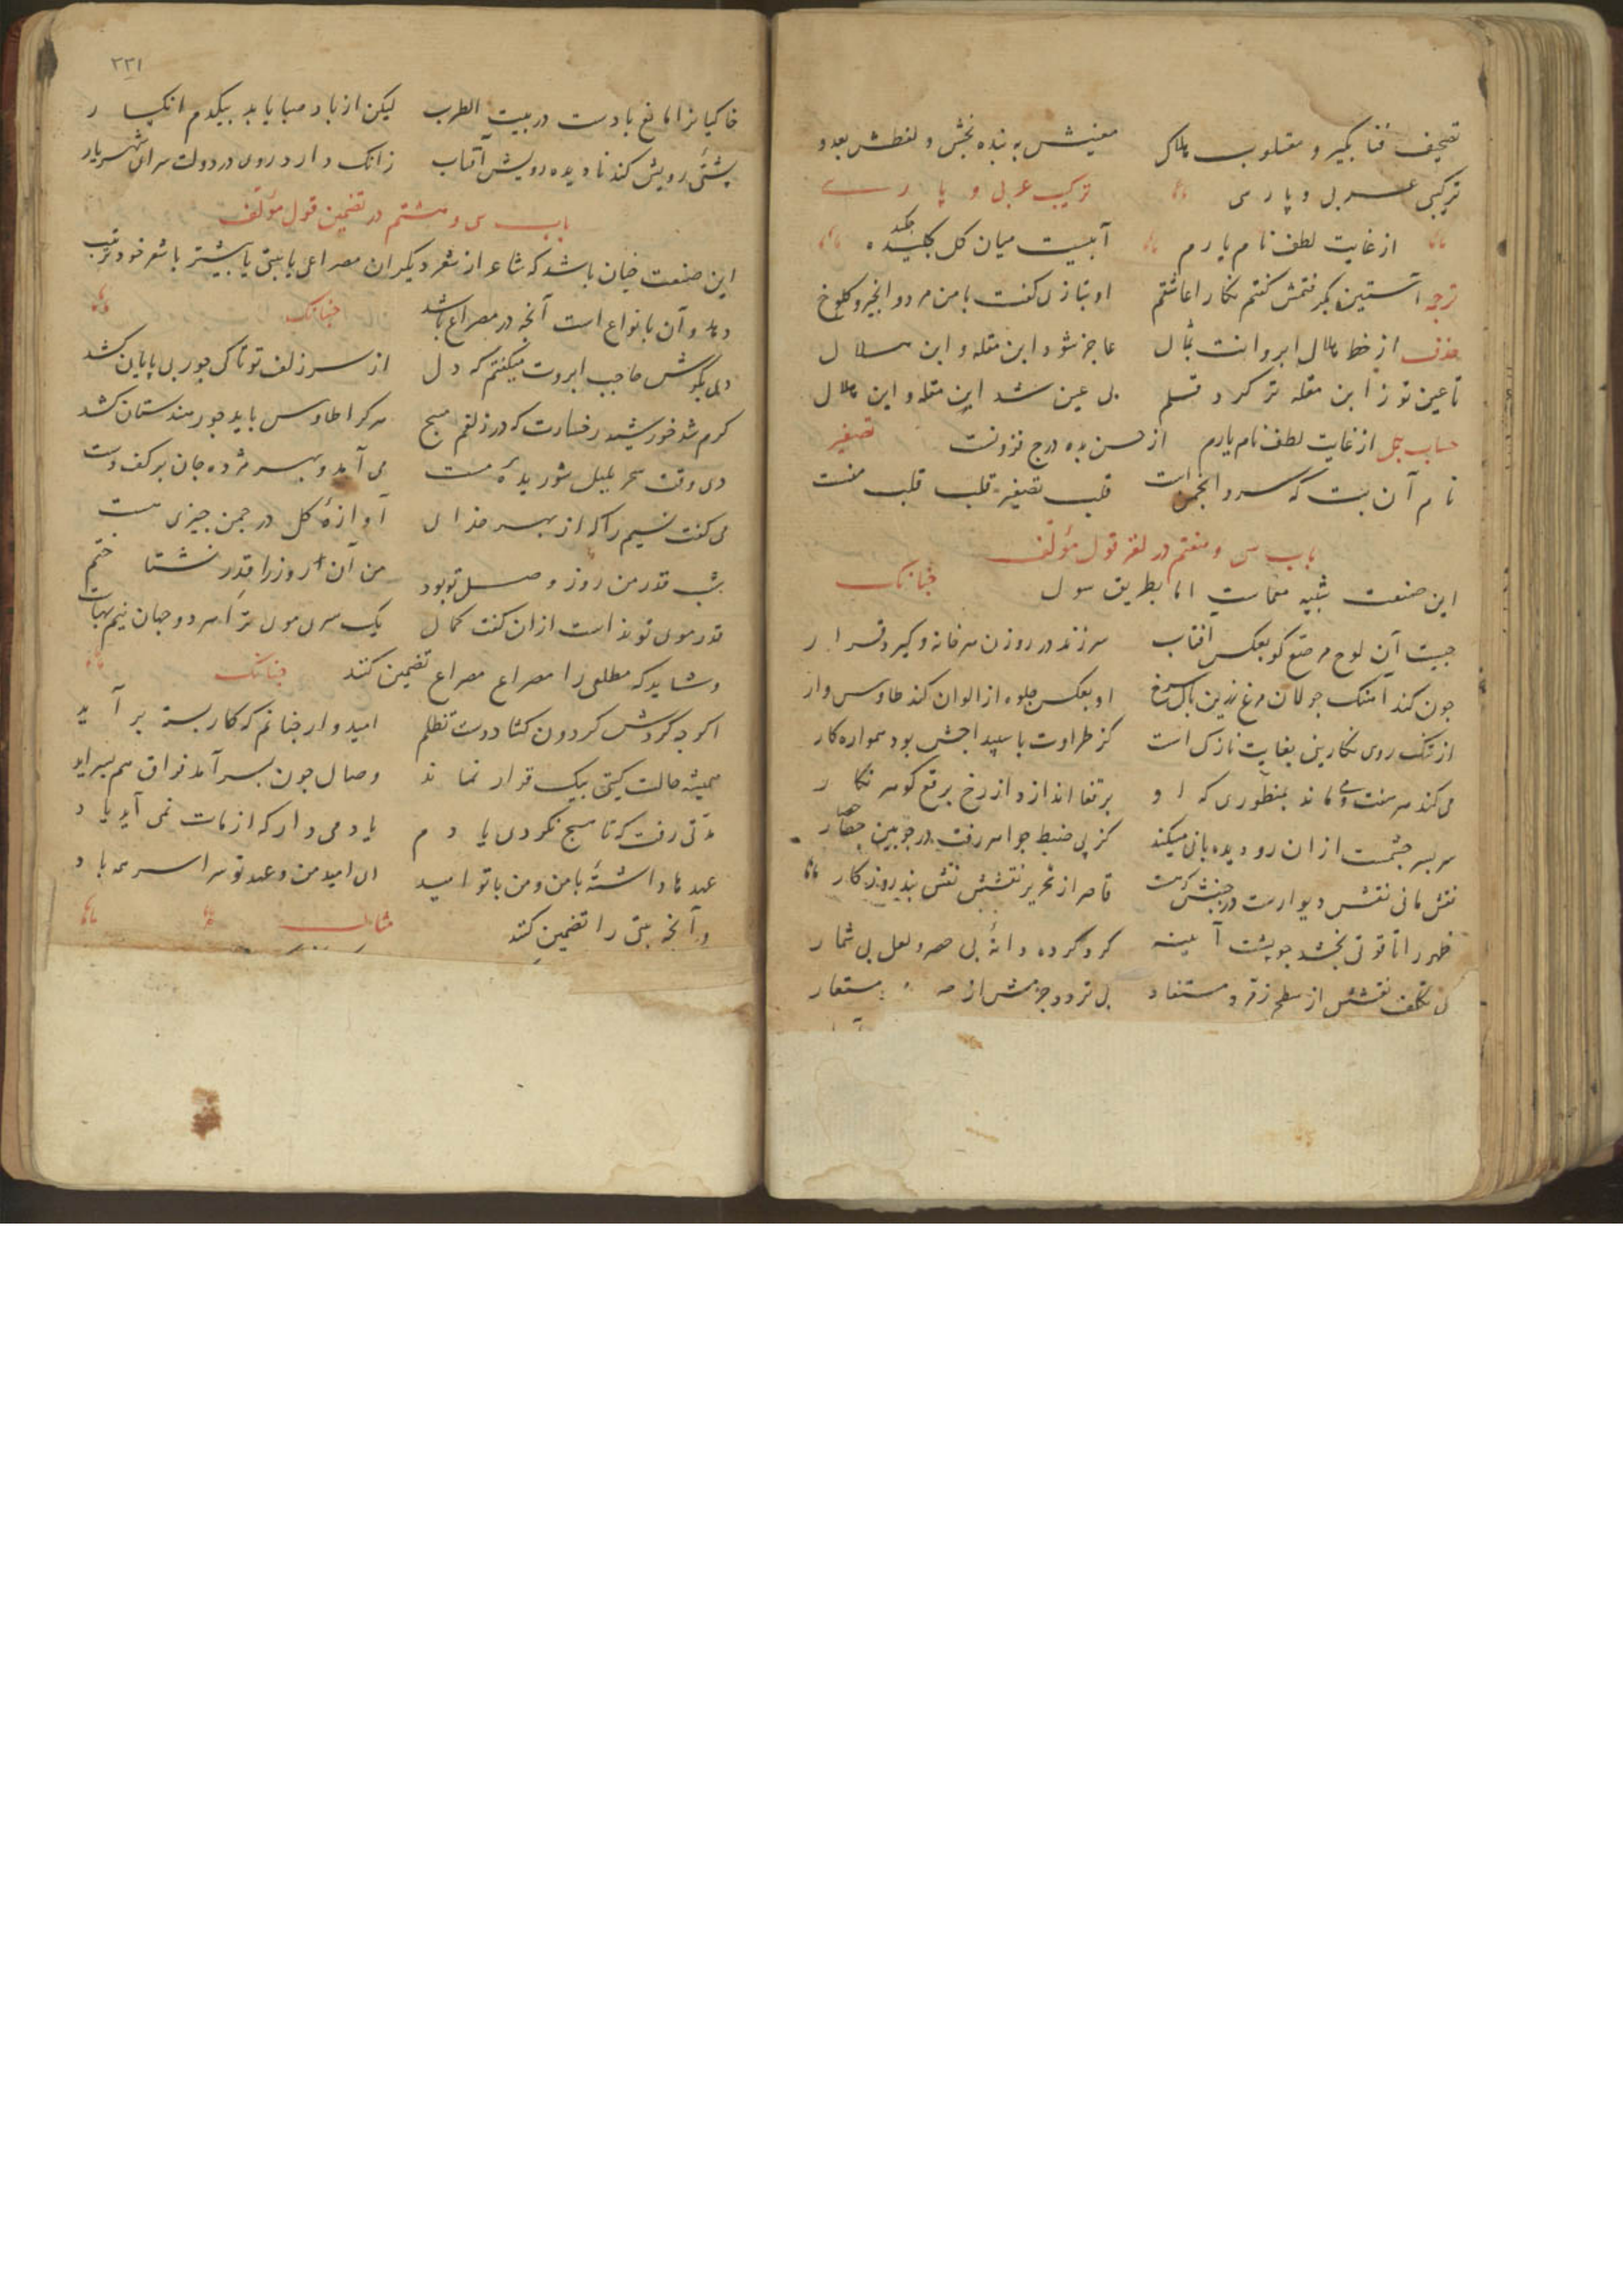 تصحیف قفا بگیر و مقلوب هلاک معنیش به بنده بخش و لفظش بعدو
ترکیبی عربی و پارسی ترکیب عربی و پارسی
از غایت لطف نام یارم آبیست میان گل چکیده
ترجمه آستین بگرفتمش گفتم نگارا عاشقم او بنازی گفت با من مرد و انجیر و کلوخ
حذف از خط هلال ابروانت بمثال عاجز شود ابن مقله و ابن هلال
تا عین تو ز ابن مقله تر کرد قلم بی عین شد این مقله و این هلال
حساب جمل از غایت لطف نام یارم از حسن ده درج فزونست تصغیر
نام آن بت که سرو انجمن است قلب تصغیر قلب قلب منست
باب سی و هفتم در لغز قول مؤلف
این صنعت شبیه معماست اما بطریق سوال چنانک
چیست آن لوح مرصع کو بعکس افتاب سر زند در روزن هر خانه و گیرد قرار
چون کند آهنگ جولان مرغ زرین بال سرخ او بعکس جلوه از الوان کند طاوس وار
از تنک روی نگارینی بغایت نازک است کز طراوت با سپیداجش بود همواره کار
می کند هر هفت و می ماند بمنظوری که او برقفا اندازد از رخ برقع گوهر نگار
سر بسر چشمست ازان رو دیده بانی میکند کز پی ضبط جواهر رفت در چوبین حصار
نقش مانی نقش دیوارست در جنبش که هست قاصر از تحریر نقشش نقش بند روزگار
ظهر را تا قوتی بخشد چو پشت آیینه گرد کرده دانهٔ بی حصر و لعل بی شمار
بی تکلف نقشش از سطح زقر و مستفاد بی تردد جرمش از مستعار
۲۳۱
خاکیانرا مانع بادست در بیت الطرب لیکن از باد صبا یابد بیکدم انکسار
پشتئ رویش کند نادیده رویش آفتاب زانک دارد روی در دولت سرای شهریار
باب سی و هشتم در تضمین قول مؤلف
این صنعت چنان باشد که شاعر از شعر دیگران مصراعی یا بیتی یا بیشتر با شعر خود ترتیب
دهد و آن بانواع است آنچه در مصراع باشد چنانک
دی بگوش حاجب ابروت میگفتم که دل از سر زلف تو تا کی جور بی پایان کشد
گرم شد خورشید رخسارت که در زلفم مپیچ هر کرا طاوس باید جور هندستان کشد
دی وقت سحر بلبل شوریدهٔ مست می آمد و بهر مژده جان بر کف دست
می گفت نسیم را که از بهر خدای آوازهٔ گل در چمن چیزی هست
شب قدر من روز وصل تو بود من آن روز را قدر نشناختم
قدر موی تو نه است ازان گفت کمال یک سر موی ترا هر دو جهان نیم بهاست
و شاید که مطلعی را مصراع مصراع تضمین کنند چنانک
اگر چه گردش گردون گشاد دست تظلم امیدوار چنانم که کار بسته بر آید
همیشه حالت گیتی بیک قرار نماند وصال چون بسر آمد فراق هم بسر آید
مدتی رفت که تا هیچ نکردی یادم یاد می دار که از مات نمی آید یاد
عهدها داشتهٔ با من و من با تو امید ای امید من و عهد تو سراسر همه باد
و آنچه بیتی را تضمین کنند مثال